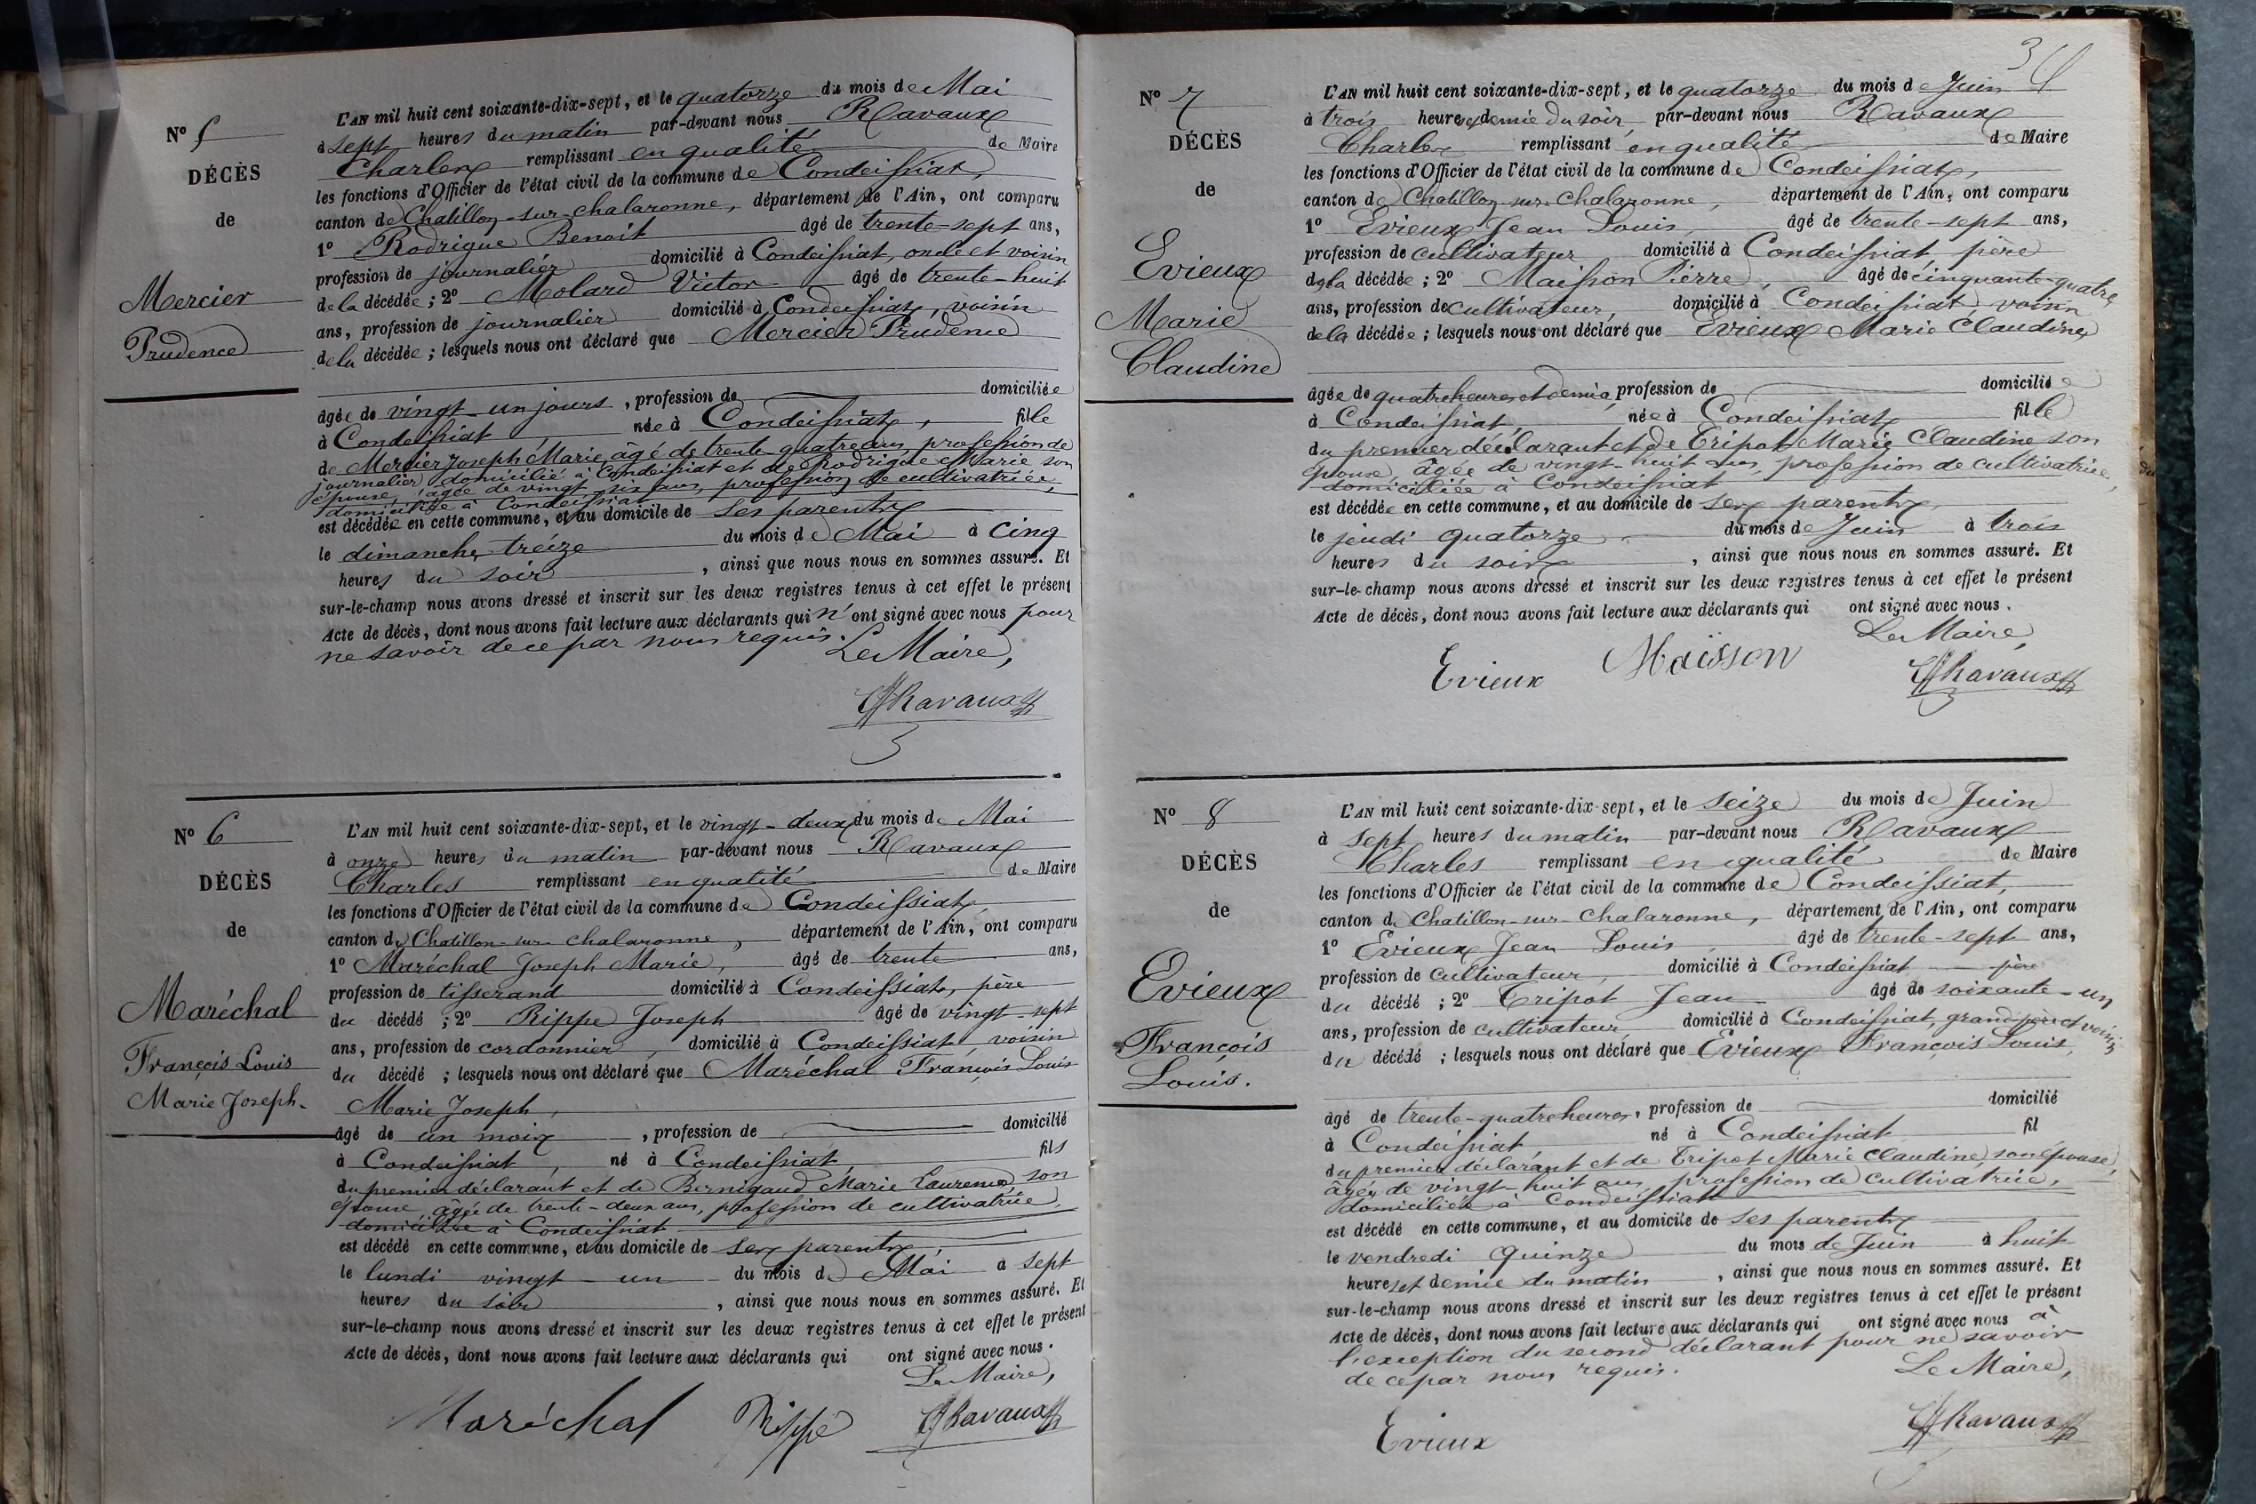 N° 5
DÉCÈS
de
Mercier
Prudence
L'AN mil huit cent soixante-dix-sept, et le quatorze du mois de Mai
à sept heures du matin par-devant nous Ravaux
Charles remplissant en qualité de Maire
les fonctions d'Officier de l'état civil de la commune de Condeissiat,
canton de Chatillon-sur-chalaronne, département de l'Ain, ont comparu
1° Rodrigue Benoit âgé de trente-sept ans,
profession de journalier domicilié à Condeissiat, oncle et voisin
de la décédée ; 2° Molard Victor âgé de trente-huit
ans, profession de journalier domicilié à Condeissiat, voisin
de la décédée ; lesquels nous ont déclaré que Mercier Prudence
âgée de vingt-un jours, profession de domiciliée
à Condeissiat née à Condeissiat, fille
de Mercier Joseph Marie, âgé de trente-quatre ans, profession de
journalier, domicilié à Condeissiat et de Rodrigue Marie son
épouse, âgée de vingt-six ans, profession de cultivatrice,
domiciliée à Condeissiat
est décédée en cette commune, et au domicile de ses parents
le dimanche treize du mois de Mai à cinq
heures du soir, ainsi que nous nous en sommes assuré. Et
sur-le-champ nous avons dressé et inscrit sur les deux registres tenus à cet effet le présent
Acte de décès, dont nous avons fait lecture aux déclarants qui n'ont signé avec nous pour
ne savoir de ce par nous requis.
Le Maire,
Ravaux
N° 6
DÉCÈS
de
Maréchal
François Louis
Marie Joseph.
L'AN mil huit cent soixante-dix-sept, et le vingt-deux du mois de Mai
à onze heures du matin par-devant nous Ravaux
Charles remplissant en qualité de Maire
les fonctions d'Officier de l'état civil de la commune de Condeissiat,
canton de Chatillon-sur-chalaronne, département de l'Ain, ont comparu
1° Maréchal Joseph Marie, âgé de trente ans,
profession de tisserand domicilié à Condeissiat, père
du décédé ; 2° Rippe Joseph âgé de vingt-sept
ans, profession de cordonnier, domicilié à Condeissiat, voisin
du décédé ; lesquels nous ont déclaré que Maréchal François Louis
Marie Joseph,
âgé de un mois, profession de domicilié
à Condeissiat, né à Condeissiat, fils
du premier déclarant et de Bernigaud Marie Laurence, son
épouse, âgée de trente-deux ans, profession de cultivatrice,
domiciliée à Condeissiat
est décédé en cette commune, et au domicile de ses parents,
le lundi vingt-un du mois de Mai à sept
heures du soir, ainsi que nous nous en sommes assuré. Et
sur-le-champ nous avons dressé et inscrit sur les deux registres tenus à cet effet le présent
Acte de décès, dont nous avons fait lecture aux déclarants qui ont signé avec nous.
Le Maire,
Maréchal Rippe Ravaux
34
N° 7
DÉCÈS
de
Evieux
Marie
Claudine
L'AN mil huit cent soixante-dix-sept, et le quatorze du mois de Juin
à trois heures et demie du soir, par-devant nous Ravaux
Charles remplissant en qualité de Maire
les fonctions d'Officier de l'état civil de la commune de Condeissiat,
canton de Chatillon-sur-Chalaronne, département de l'Ain, ont comparu
1° Evieux Jean Louis, âgé de trente-sept ans,
profession de cultivateur domicilié à Condeissiat, père
de la décédée ; 2° Maisson Pierre, âgé de cinquante-quatre
ans, profession de cultivateur, domicilié à Condeissiat, voisin
de la décédée ; lesquels nous ont déclaré que Evieux Marie Claudine
âgée de quatre heures et demie, profession de domiciliée
à Condeissiat, née à Condeissiat fille
du premier déclarant et de Tripot Marie Claudine son
épouse, âgée de vingt-huit ans, profession de cultivatrice,
domiciliée à Condeissiat
est décédée en cette commune, et au domicile de ses parents
le jeudi quatorze du mois de Juin à trois
heures du soir, ainsi que nous nous en sommes assuré. Et
sur-le-champ nous avons dressé et inscrit sur les deux registres tenus à cet effet le présent
Acte de décès, dont nous avons fait lecture aux déclarants qui ont signé avec nous.
Le Maire,
Evieux Maïsson Ravaux
N° 8
DÉCÈS
de
Evieux
François
Louis.
L'AN mil huit cent soixante-dix-sept, et le seize du mois de Juin
à sept heures du matin par-devant nous Ravaux
Charles remplissant en qualité de Maire
les fonctions d'Officier de l'état civil de la commune de Condeissiat,
canton de Chatillon-sur-Chalaronne, département de l'Ain, ont comparu
1° Evieux Jean Louis, âgé de trente-sept ans,
profession de cultivateur, domicilié à Condeissiat père
du décédé ; 2° Tripot Jean âgé de soixante-un
ans, profession de cultivateur, domicilié à Condeissiat, grand-père et voisin
du décédé ; lesquels nous ont déclaré que Evieux François Louis,
âgé de trente-quatre heures, profession de domicilié
à Condeissiat, né à Condeissiat fil
du premier déclarant et de Tripot Marie Claudine son épouse,
âgée de vingt-huit ans, profession de cultivatrice,
domiciliée à Condeissiat
est décédé en cette commune, et au domicile de ses parents
le vendredi quinze du mois de Juin à huit
heures et demie du matin, ainsi que nous nous en sommes assuré. Et
sur-le-champ nous avons dressé et inscrit sur les deux registres tenus à cet effet le présent
Acte de décès, dont nous avons fait lecture aux déclarants qui ont signé avec nous à
l'exception du second déclarant pour ne savoir
de ce par nous requis.
Le Maire,
Evieux Ravaux